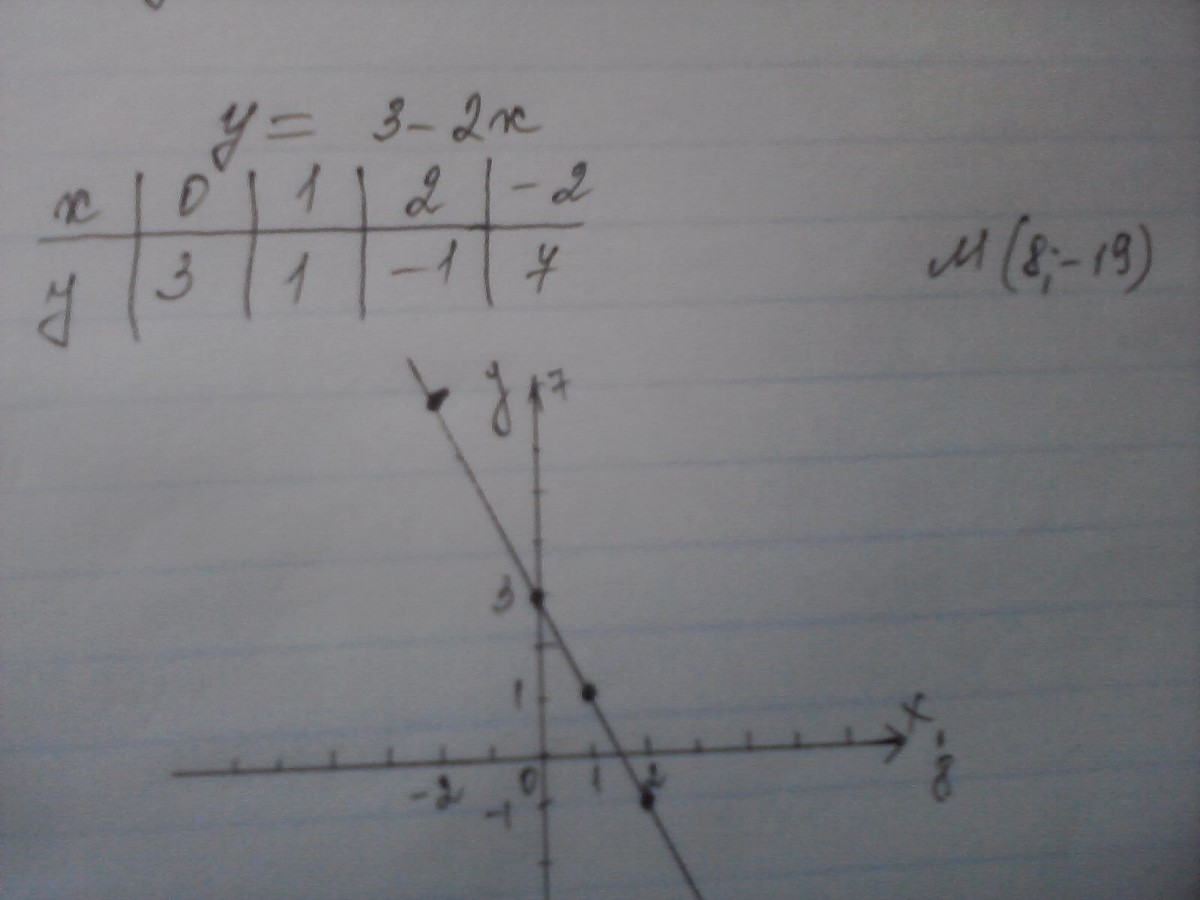 y = 3 - 2x
x | 0 | 1 | 2 | -2
y | 3 | 1 | -1 | 7
M (8; -19)
y 7
3
1
x
-2 0 1 2 8
-1